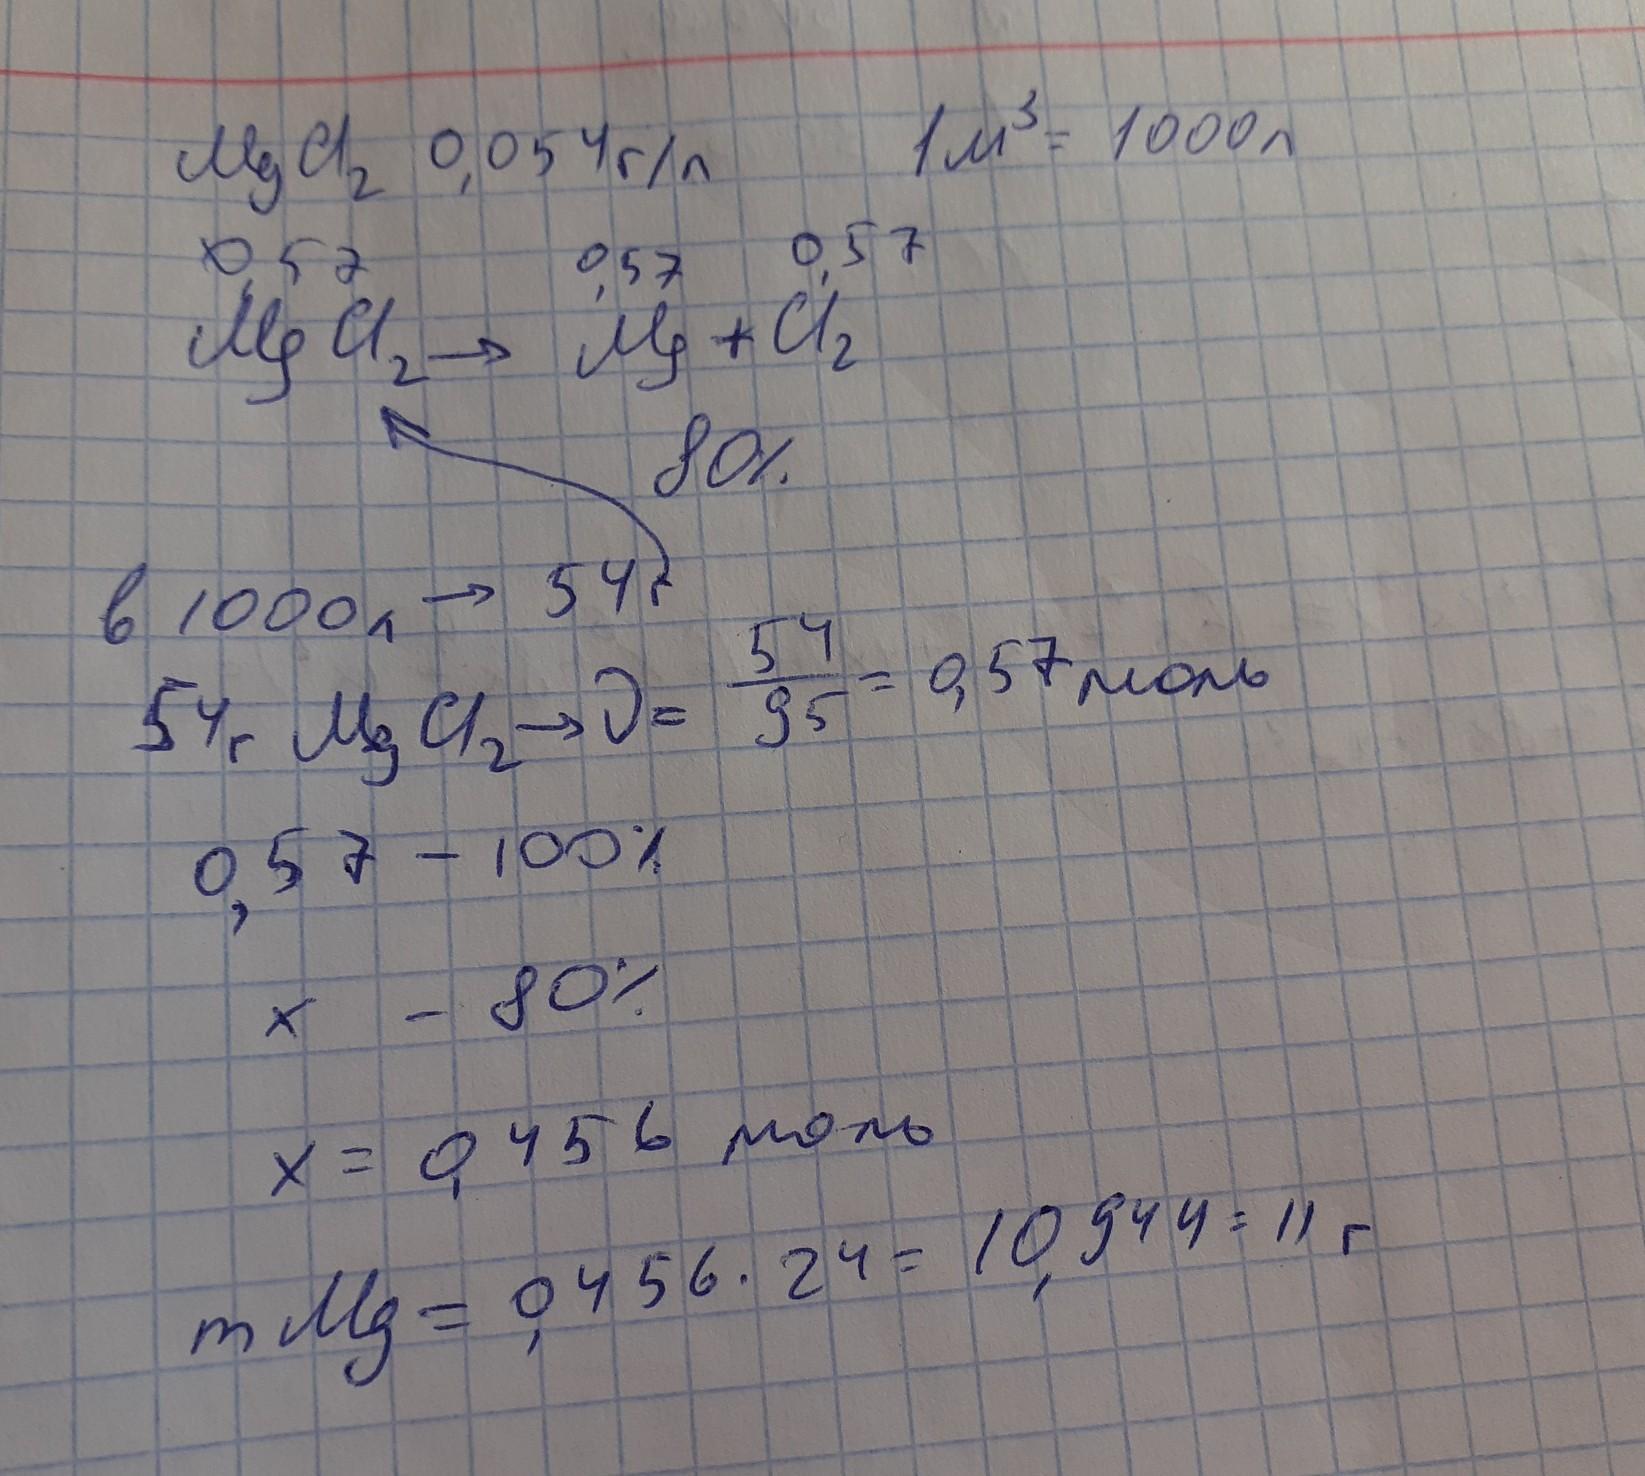 MgCl₂ 0,054г/л 1м³ = 1000л
0,57 0,57 0,57
MgCl₂ → Mg + Cl₂
80%
в 1000л → 54г
54г MgCl₂ → ν = 54/95 = 0,57 моль
0,57 – 100%
x – 80%
x = 0,456 моль
mMg = 0,456 · 24 = 10,944 = 11 г